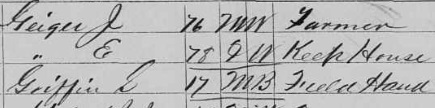 Geiger J 76 M W Farmer
" E 78 F W Keep House
Griffin L 17 M B Field Hand